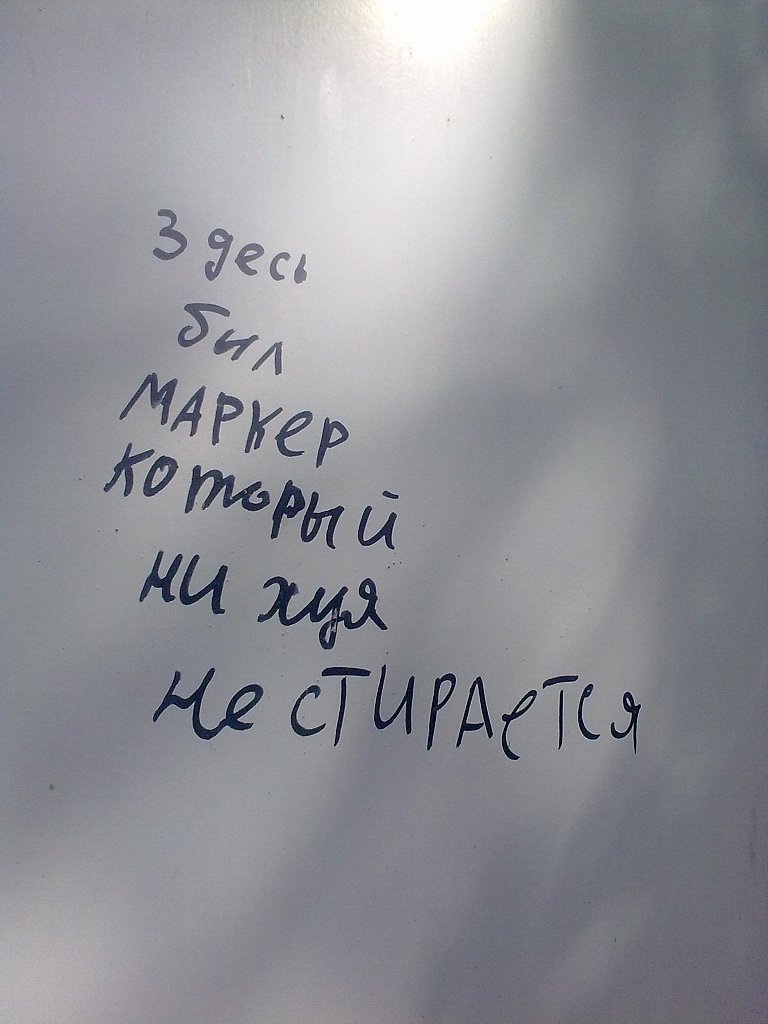 Здесь
бил
маркер
который
ни хуя
не стирается